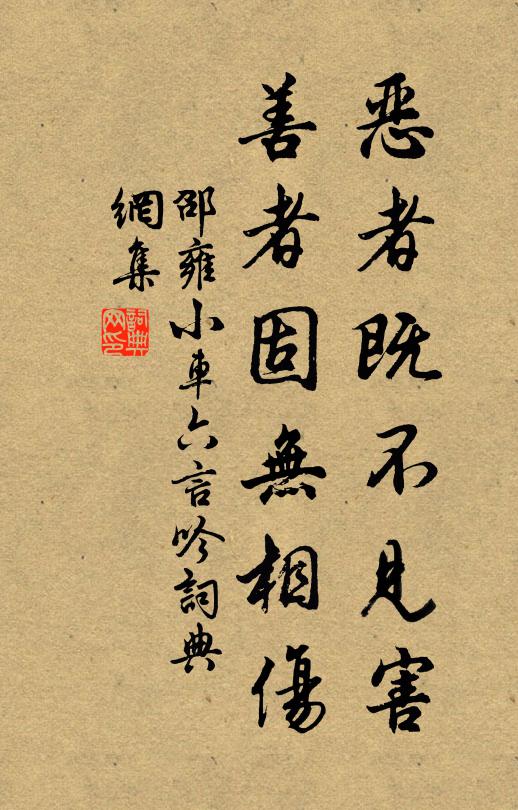 惡者既不見害
善者固無相傷
邵雍小車六言吟詞典
網集
詞典
网印